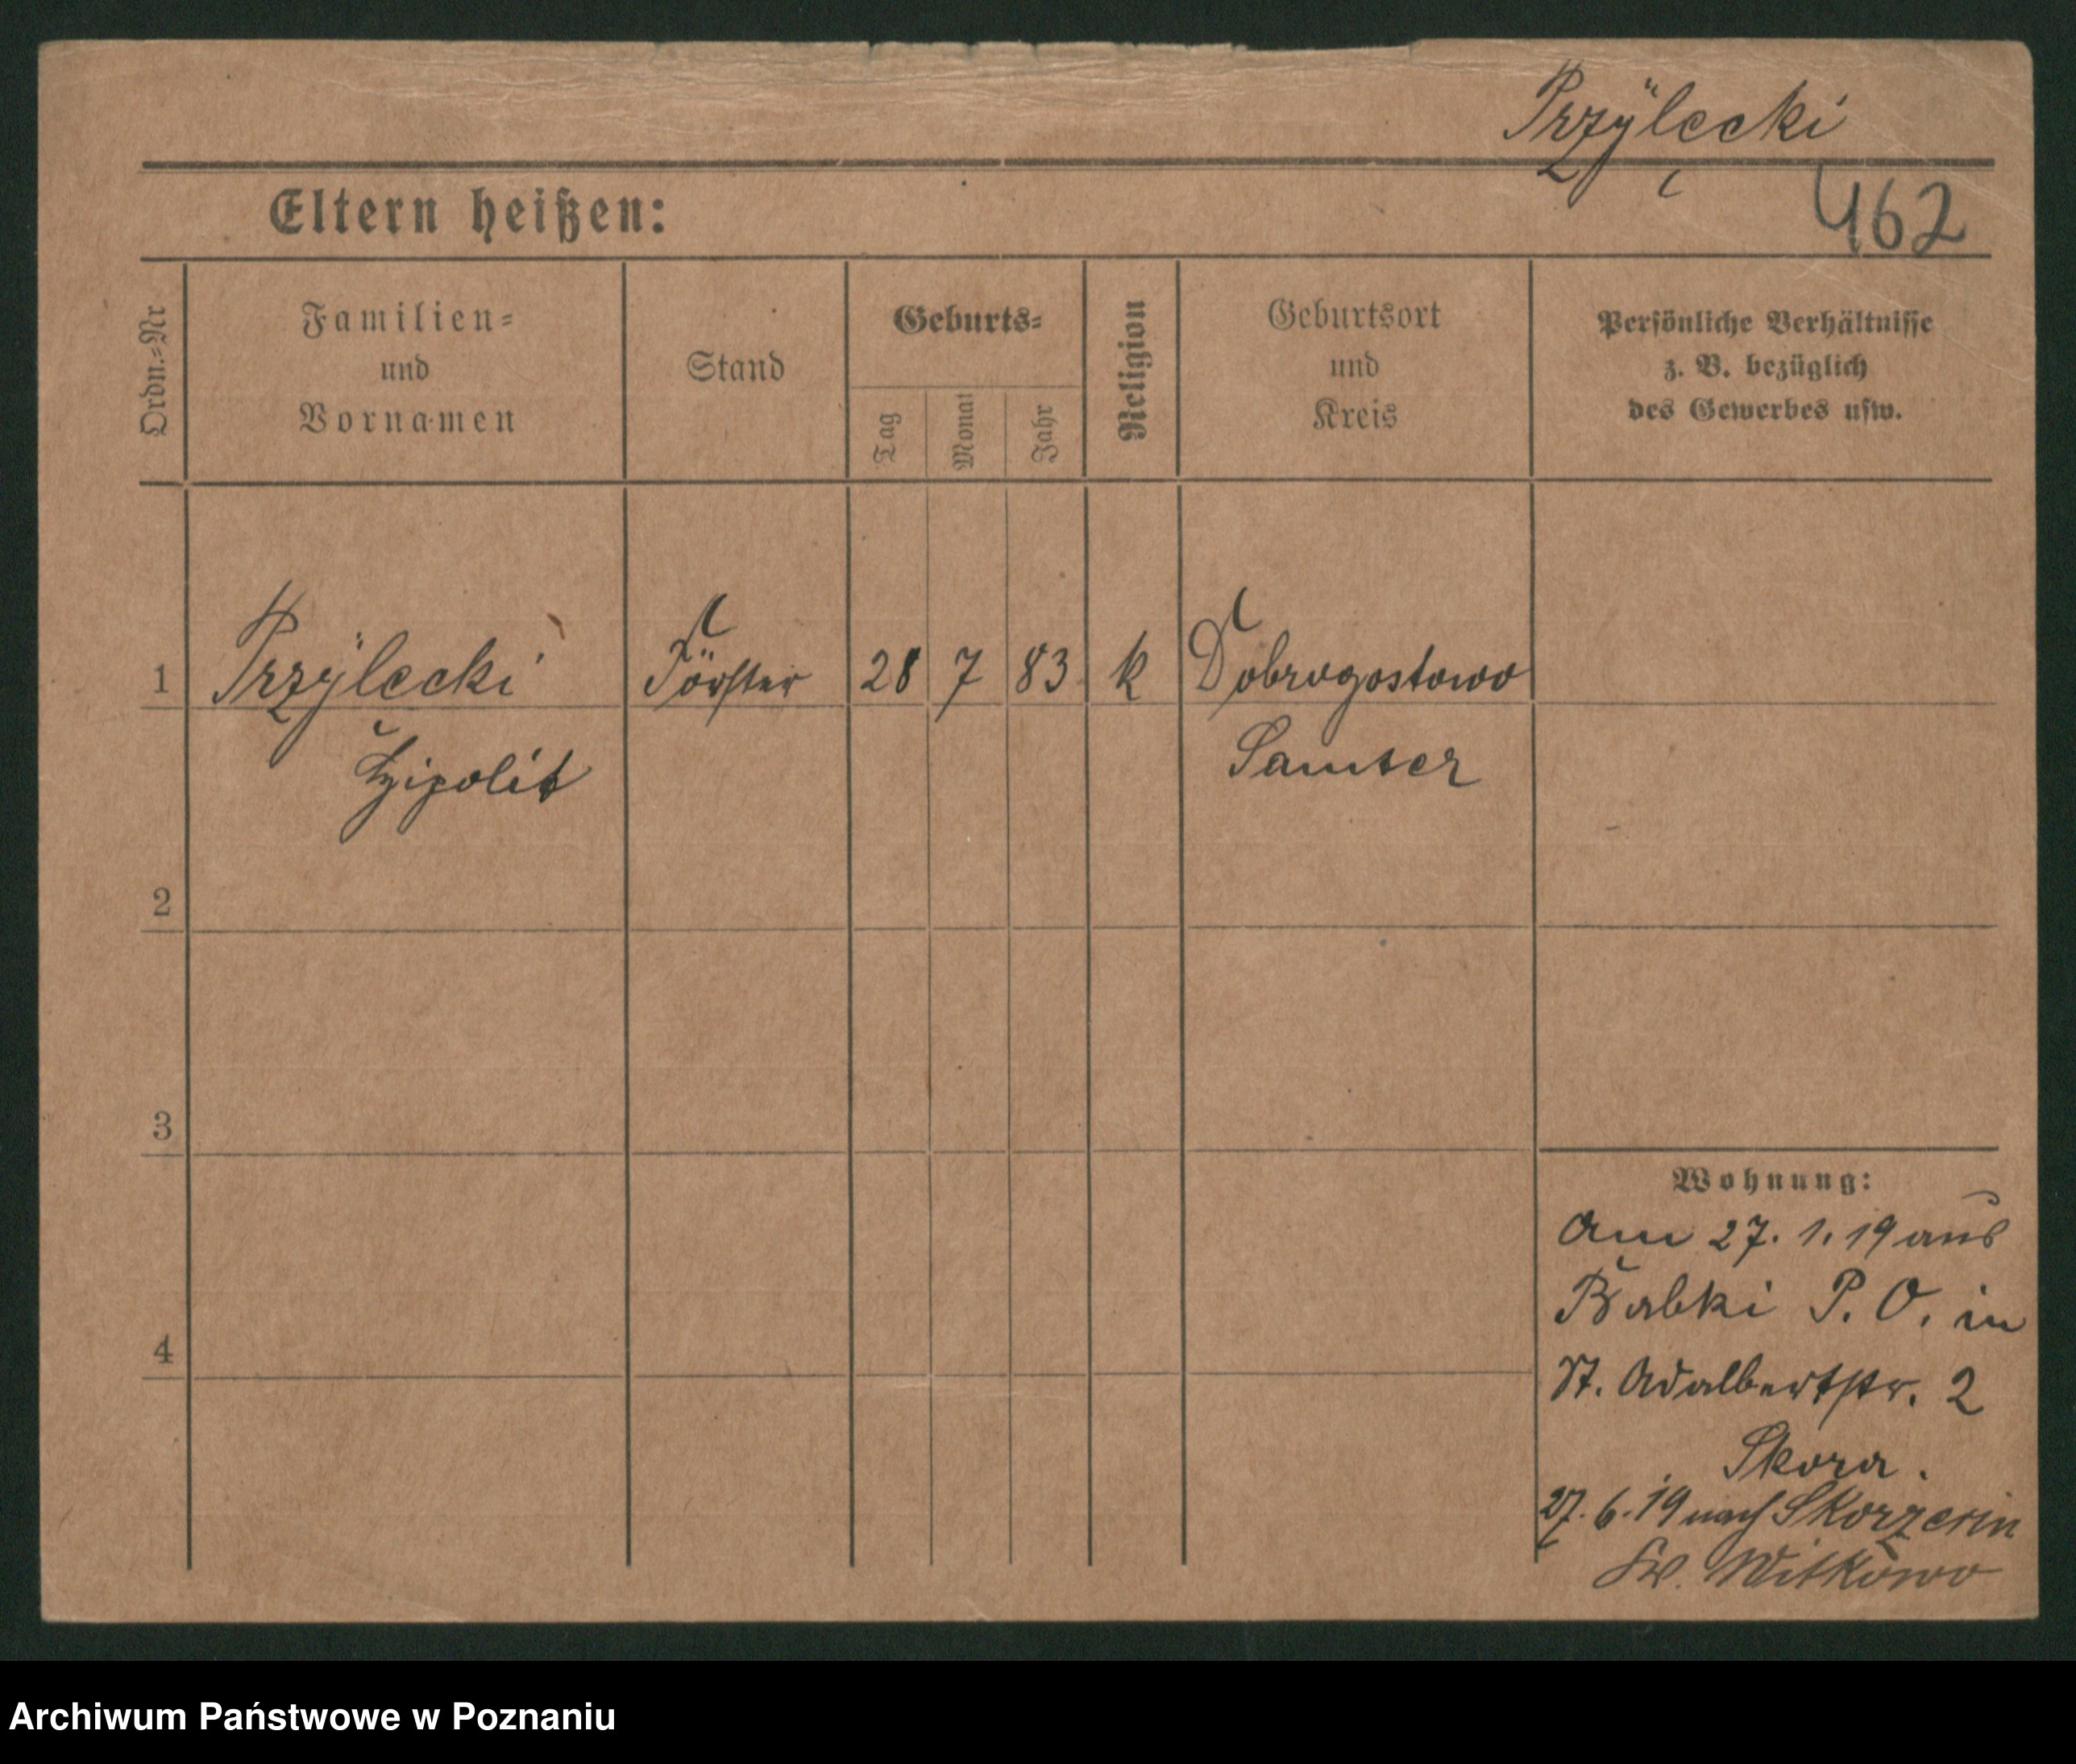 Przÿlecki
Eltern heißen:
462
Ordn.=Nr
Familien=
und
Vornamen
Stand
Geburts=
Tag
Monat
Jahr
Religion
Geburtsort
und
Kreis
Persönliche Verhältnisse
z. B. bezüglich
des Gewerbes usw.
1 Przÿlecki Förster 28 7 83 k Dobrogostowo
Samter
2
3
4
Wohnung:
Am 27. 1. 19 aus
Babki P. O. in
St. Adalbertstr. 2
Skora.
27. 6. 19 nach
Witkowo
Archiwum Państwowe w Poznaniu